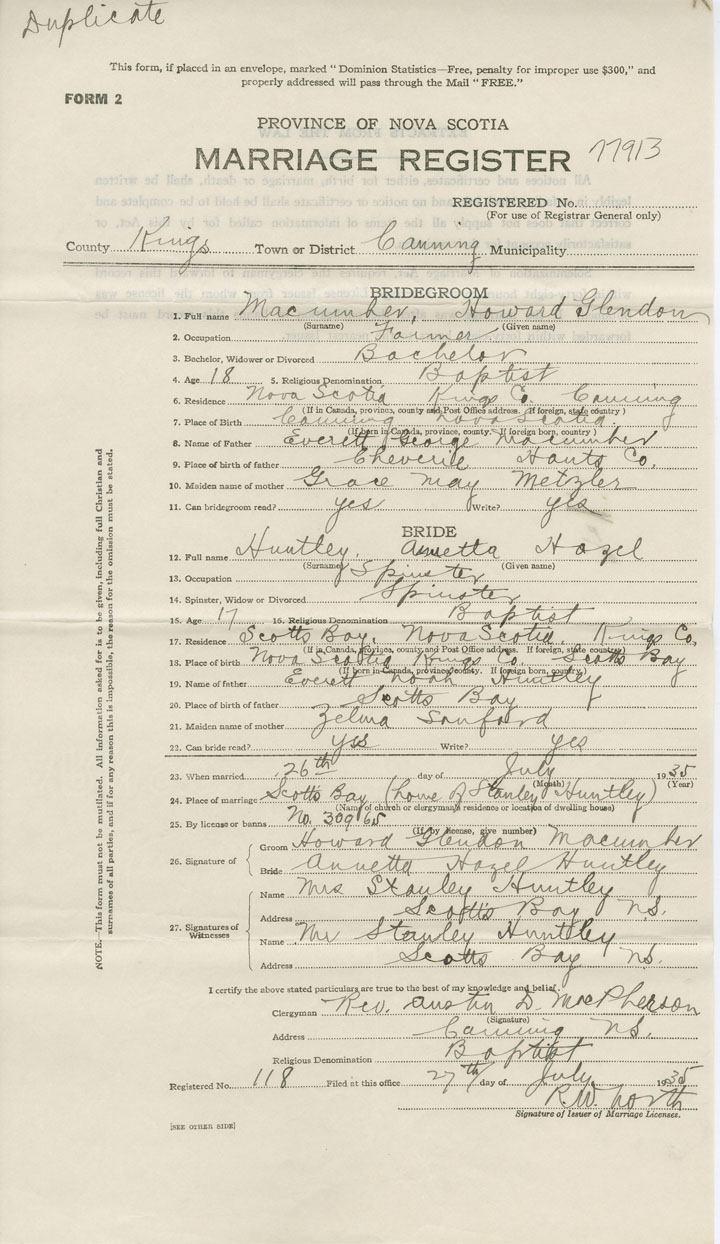 Duplicate
This form, if placed in an envelope, marked "Dominion Statistics—Free, penalty for improper use $300," and
properly addressed will pass through the Mail "FREE."
FORM 2
PROVINCE OF NOVA SCOTIA
MARRIAGE REGISTER 77913
REGISTERED No.
(For use of Registrar General only)
County Kings Town or District Canning Municipality
BRIDEGROOM
1. Full name Macumber, Howard Glendon
(Surname) (Given name)
2. Occupation Farmer
3. Bachelor, Widower or Divorced Bachelor
4. Age 18 5. Religious Denomination Baptist
6. Residence Nova Scotia Kings Co. Canning
(If in Canada, province, county and Post Office address. If foreign, state country)
7. Place of Birth Canning Nova Scotia.
(If born in Canada, province, county. If foreign born, country)
8. Name of Father Everett George Macumber
9. Place of birth of father Cheverie Hants Co.
10. Maiden name of mother Grace May Metzler
11. Can bridegroom read? yes Write? yes
BRIDE
12. Full name Huntley, Annetta Hazel
(Surname) (Given name)
13. Occupation Spinster
14. Spinster, Widow or Divorced Spinster
15. Age 17 16. Religious Denomination Baptist
17. Residence Scotts Bay, Nova Scotia. Kings Co,
(If in Canada, province, county, and Post Office address. If foreign, state country)
18. Place of birth Nova Scotia Kings Co. Scotts Bay
(If born in Canada, province, county. If foreign born, country)
19. Name of father Everett Noah Huntley
20. Place of birth of father Scotts Bay
21. Maiden name of mother Zelma Sanford
22. Can bride read? yss Write? yes
23. When married 26th day of July 1935
(Month) (Year)
24. Place of marriage Scotts Bay (home of Stanley Huntley)
(Name of church or clergyman's residence or location of dwelling house)
25. By license or banns No. 30965
(If by license, give number)
26. Signature of Groom Howard Glendon Macumber
Bride Annetta Hazel Huntley
27. Signatures of Witnesses Name Mrs Stanley Huntley
Address Scotts Bay N.S.
Name Mr Stanley Huntley
Address Scotts Bay N.S.
I certify the above stated particulars are true to the best of my knowledge and belief.
Clergyman Rev. Austin D. MacPherson
(Signature)
Address Canning N.S.
Religious Denomination Baptist
Registered No. 118 Filed at this office 27th day of July 1935
R.W. North
Signature of Issuer of Marriage Licenses.
[SEE OTHER SIDE]
NOTE.—This form must not be mutilated. All information asked for is to be given, including full Christian and
surnames of all parties, and if for any reason this is impossible, the reason for the omission must be stated.